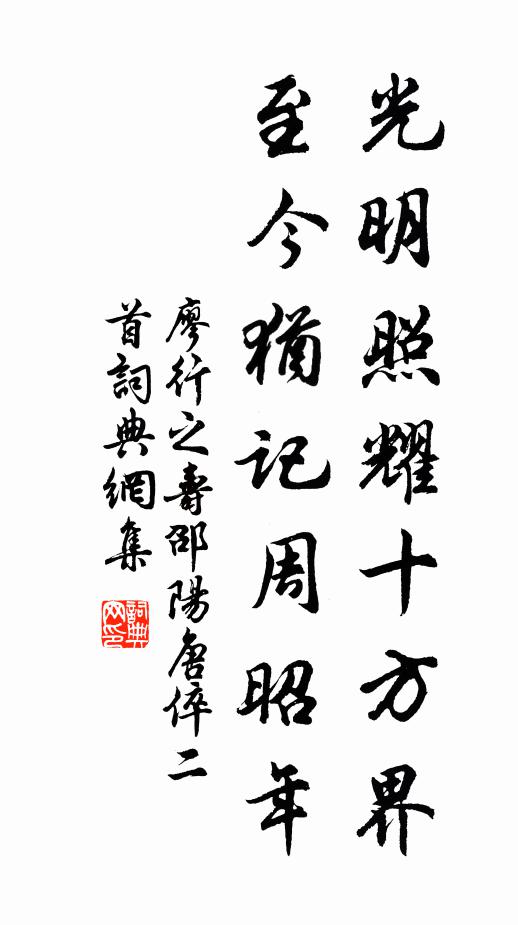 光明照耀十方界
至今猶記周昭年
廖行之壽邵陽唐倅二
首詞典網集
詞典
网印